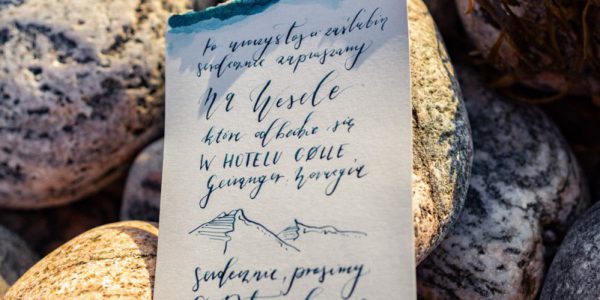 Po uroczystości zaślubin
serdecznie zapraszamy
Na Wesele
które odbędzie się
W HOTELU GØLLE
Geiranger, Norwegia
serdecznie prosimy